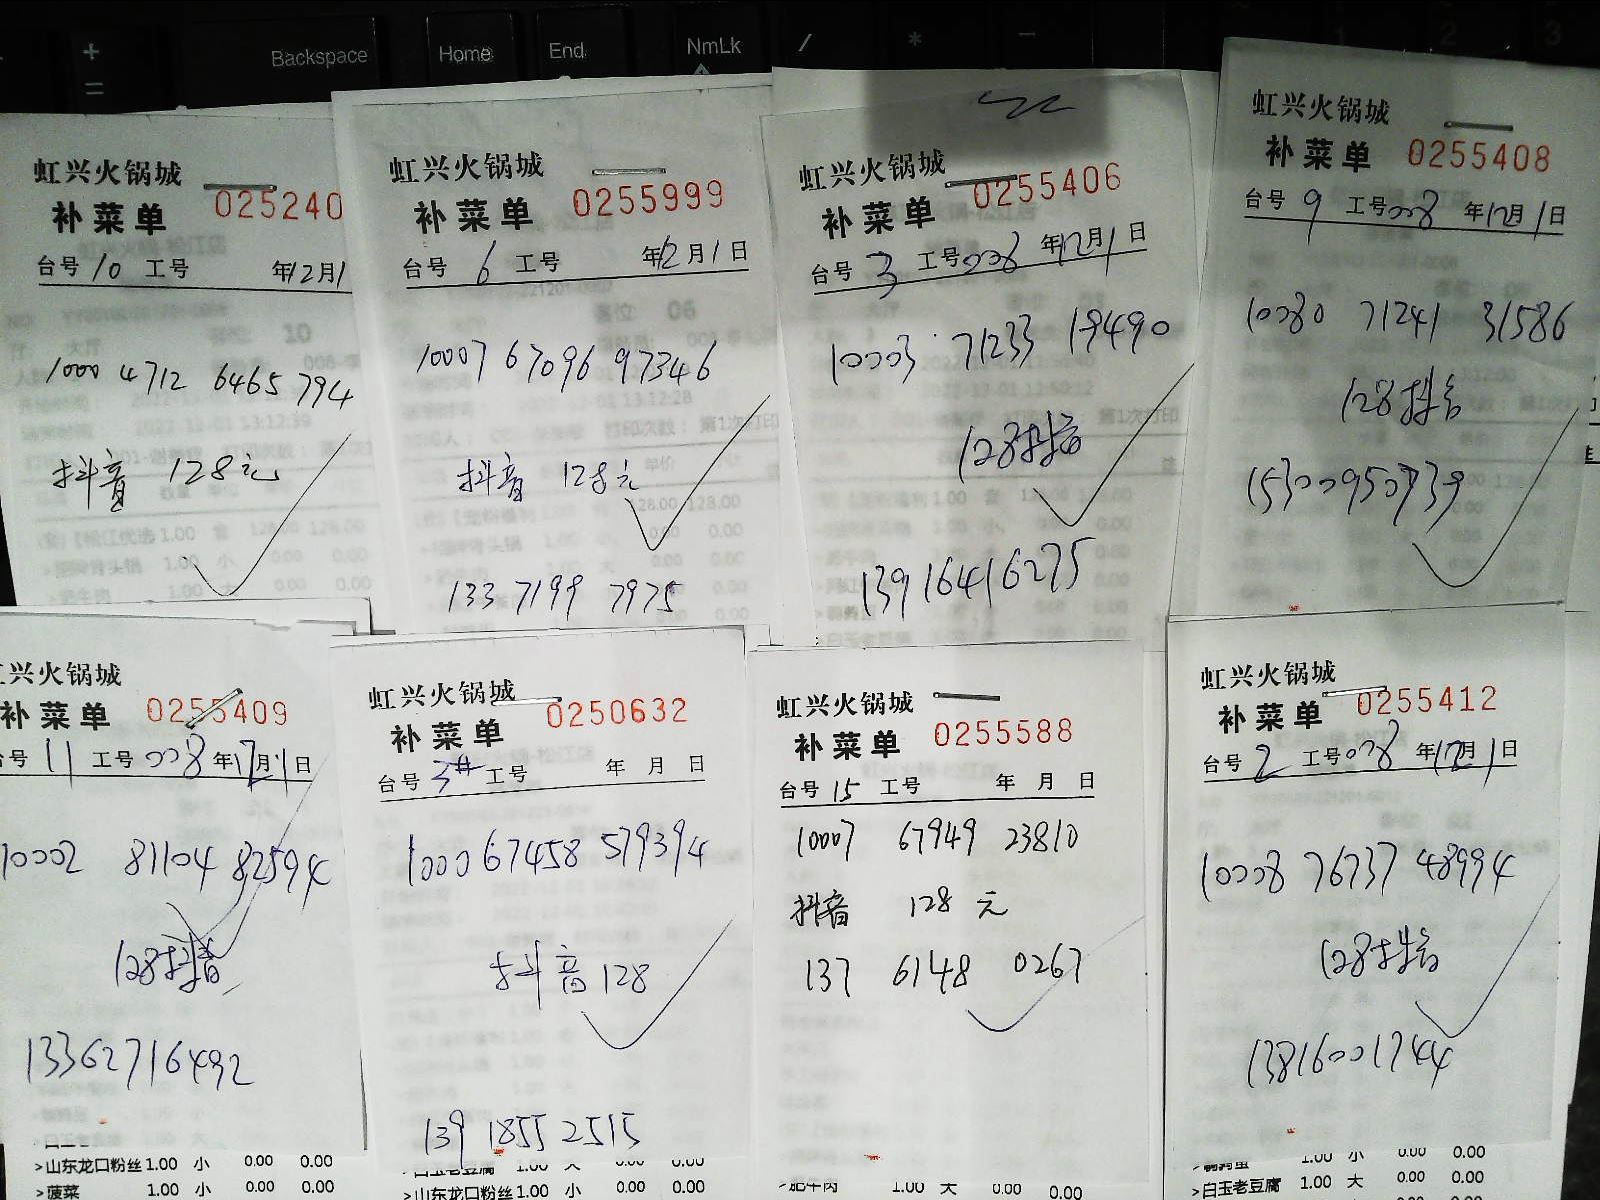 Backspace
Home
End
NmLk
虹兴火锅城
补菜单 025240
台号 10 工号 年12月1
1000 4712 6465 794
抖音 128元
虹兴火锅城
补菜单 0255999
台号 6 工号 年12月1日
10007 67096 97346
抖音 128元
133 7199 7975
虹兴火锅城
补菜单 0255406
台号 3 工号008 年12月1日
10003 71233 19490
128抖音
13916416275
虹兴火锅城
补菜单 0255408
台号 9 工号008 年12月1日
10080 71241 31586
128抖音
15300950739
虹兴火锅城
补菜单 0255409
台号 11 工号008 年12月1日
10002 81104 82594
128抖音
13362716492
>山东龙口粉丝 1.00 小 0.00 0.00
>菠菜 1.00 小 0.00 0.00
虹兴火锅城
补菜单 0250632
台号 3# 工号 年 月 日
1000 67458 579394
抖音 128
139 1855 2515
>白玉老豆腐 1.00 大 0.00 0.00
>山东龙口粉丝 1.00 小 0.00 0.00
虹兴火锅城
补菜单 0255588
台号 15 工号 年 月 日
10007 67949 23810
抖音 128 元
137 6148 0267
>肥牛肉 1.00 大 0.00 0.00
虹兴火锅城
补菜单 0255412
台号 2 工号008 年12月1日
10008 76737 48994
128抖音
13816001744
1.00 小 0.00 0.00
>白玉老豆腐 1.00 大 0.00 0.00